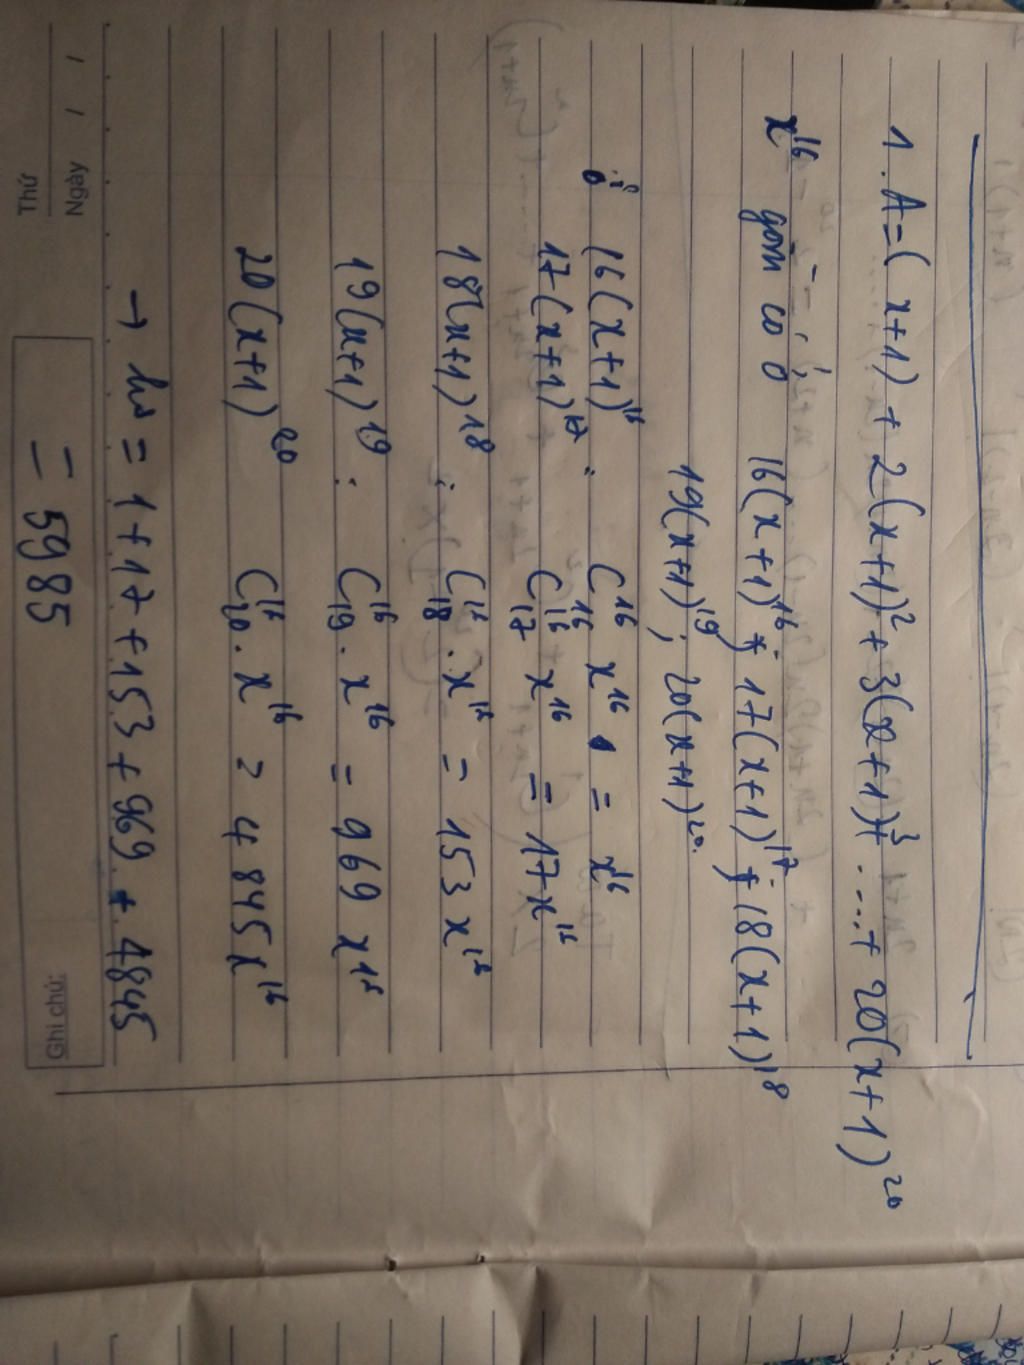 1. A = (x+1) + 2(x+1)² + 3(x+1)³ + .... + 20(x+1)²⁰
x¹⁶ gồm có ở 16(x+1)¹⁶ ; 17(x+1)¹⁷ ; 18(x+1)¹⁸
19(x+1)¹⁹ ; 20(x+1)²⁰.
16(x+1)¹⁶ : C₁₆¹⁶ x¹⁶ = x¹⁶
17(x+1)¹⁷ : C₁₇¹⁶ x¹⁶ = 17x¹⁶
18(x+1)¹⁸ : C₁₈¹⁶ . x¹⁶ = 153x¹⁶
19(x+1)¹⁹ : C₁₉¹⁶ . x¹⁶ = 969 x¹⁶
20(x+1)²⁰ C₂₀¹⁶ . x¹⁶ = 4845x¹⁶
→ hs = 1 + 17 + 153 + 969 + 4845
= 5985
Thứ
Ngày / /
Ghi chú: